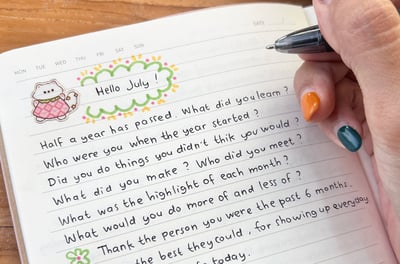 DATE
MON TUE WED THU FRI SAT SUN
Hello July !
Half a year has passed. What did you learn ?
Who were you when the year started ?
Did you do things you didn't thik you would ?
What did you make ? Who did you meet ?
What was the highlight of each month ?
What would you do more of and less of ?
Thank the person you were the past 6 months.
the best they could, for showing up everyday
today.